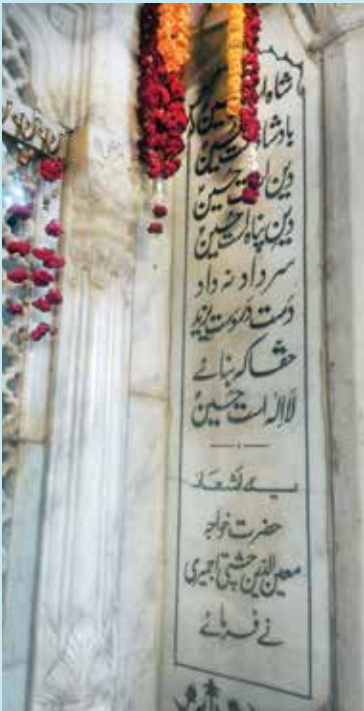 شاہ
حسینؑ
دین حسینؑ
دین پناہ است حسینؑ
سر داد نہ داد
دست در دست یزید
حقا کہ بنائے
لا الٰہ است حسینؑ
یہ اشعار
حضرت خواجہ
معین الدین چشتی اجمیری
نے فرمائے